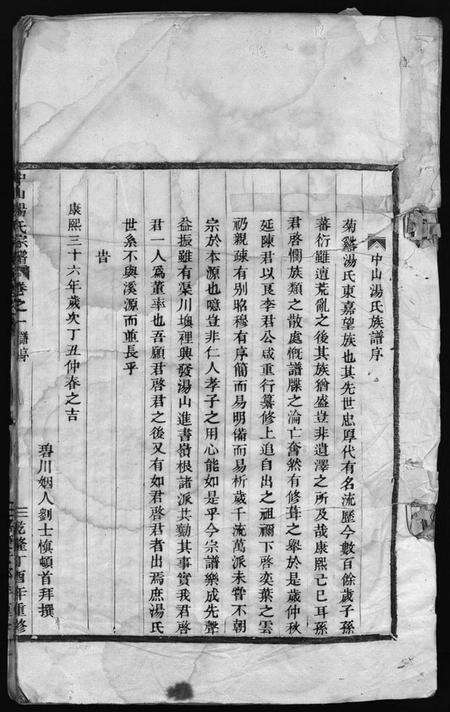 中山湯氏族譜序
菊谿湯氏東嘉望族也其先世忠厚代有名流歷今數百餘歲子孫
蕃衍雖遭荒亂之後其族猶盛豈非遺澤之所及哉康熙己巳耳孫
君啓憫族類之散處慨譜牒之淪亡奮然有修葺之舉於是歲仲秋
延陳君以良李君公咸重行纂修上追自出之祖禰下啓奕葉之雲
礽親疎有别昭穆有序簡而易明備而易析歲千流萬派未嘗不朝
宗於本源也噫豈非仁人孝子之用心能如是乎今宗譜樂成先聲
益振雖有渠川墺裡興發湯山進書嶺根諸派共勷其事實我君啓
君一人爲董率也吾願君啓君之後又有如君啓君者出焉庶湯氏
世系不與溪源而並長乎
旹
康熙三十六年歲次丁丑仲春之吉
碧川姻人劉士慎頓首拜撰
中山湯氏宗譜 卷之一 譜序
乾隆丁酉年重修